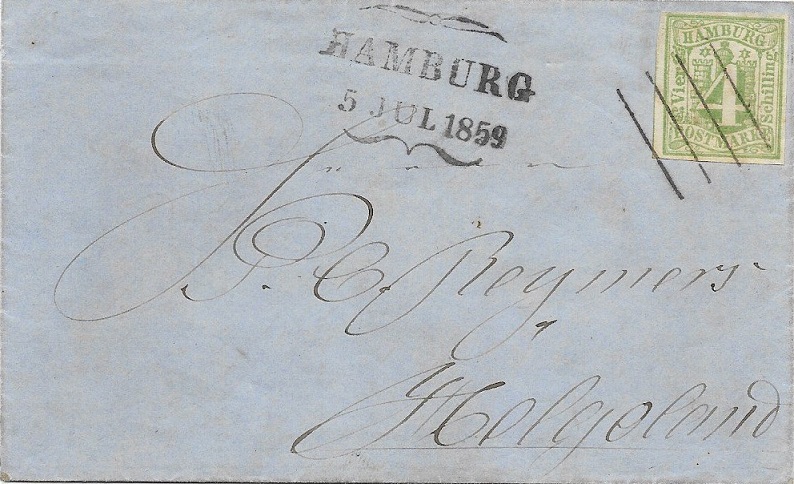 HAMBURG
5 JUL 1859
HAMBURG
Vier
4
Schilling
POSTMARKE
P. C. Reymers
Helgoland